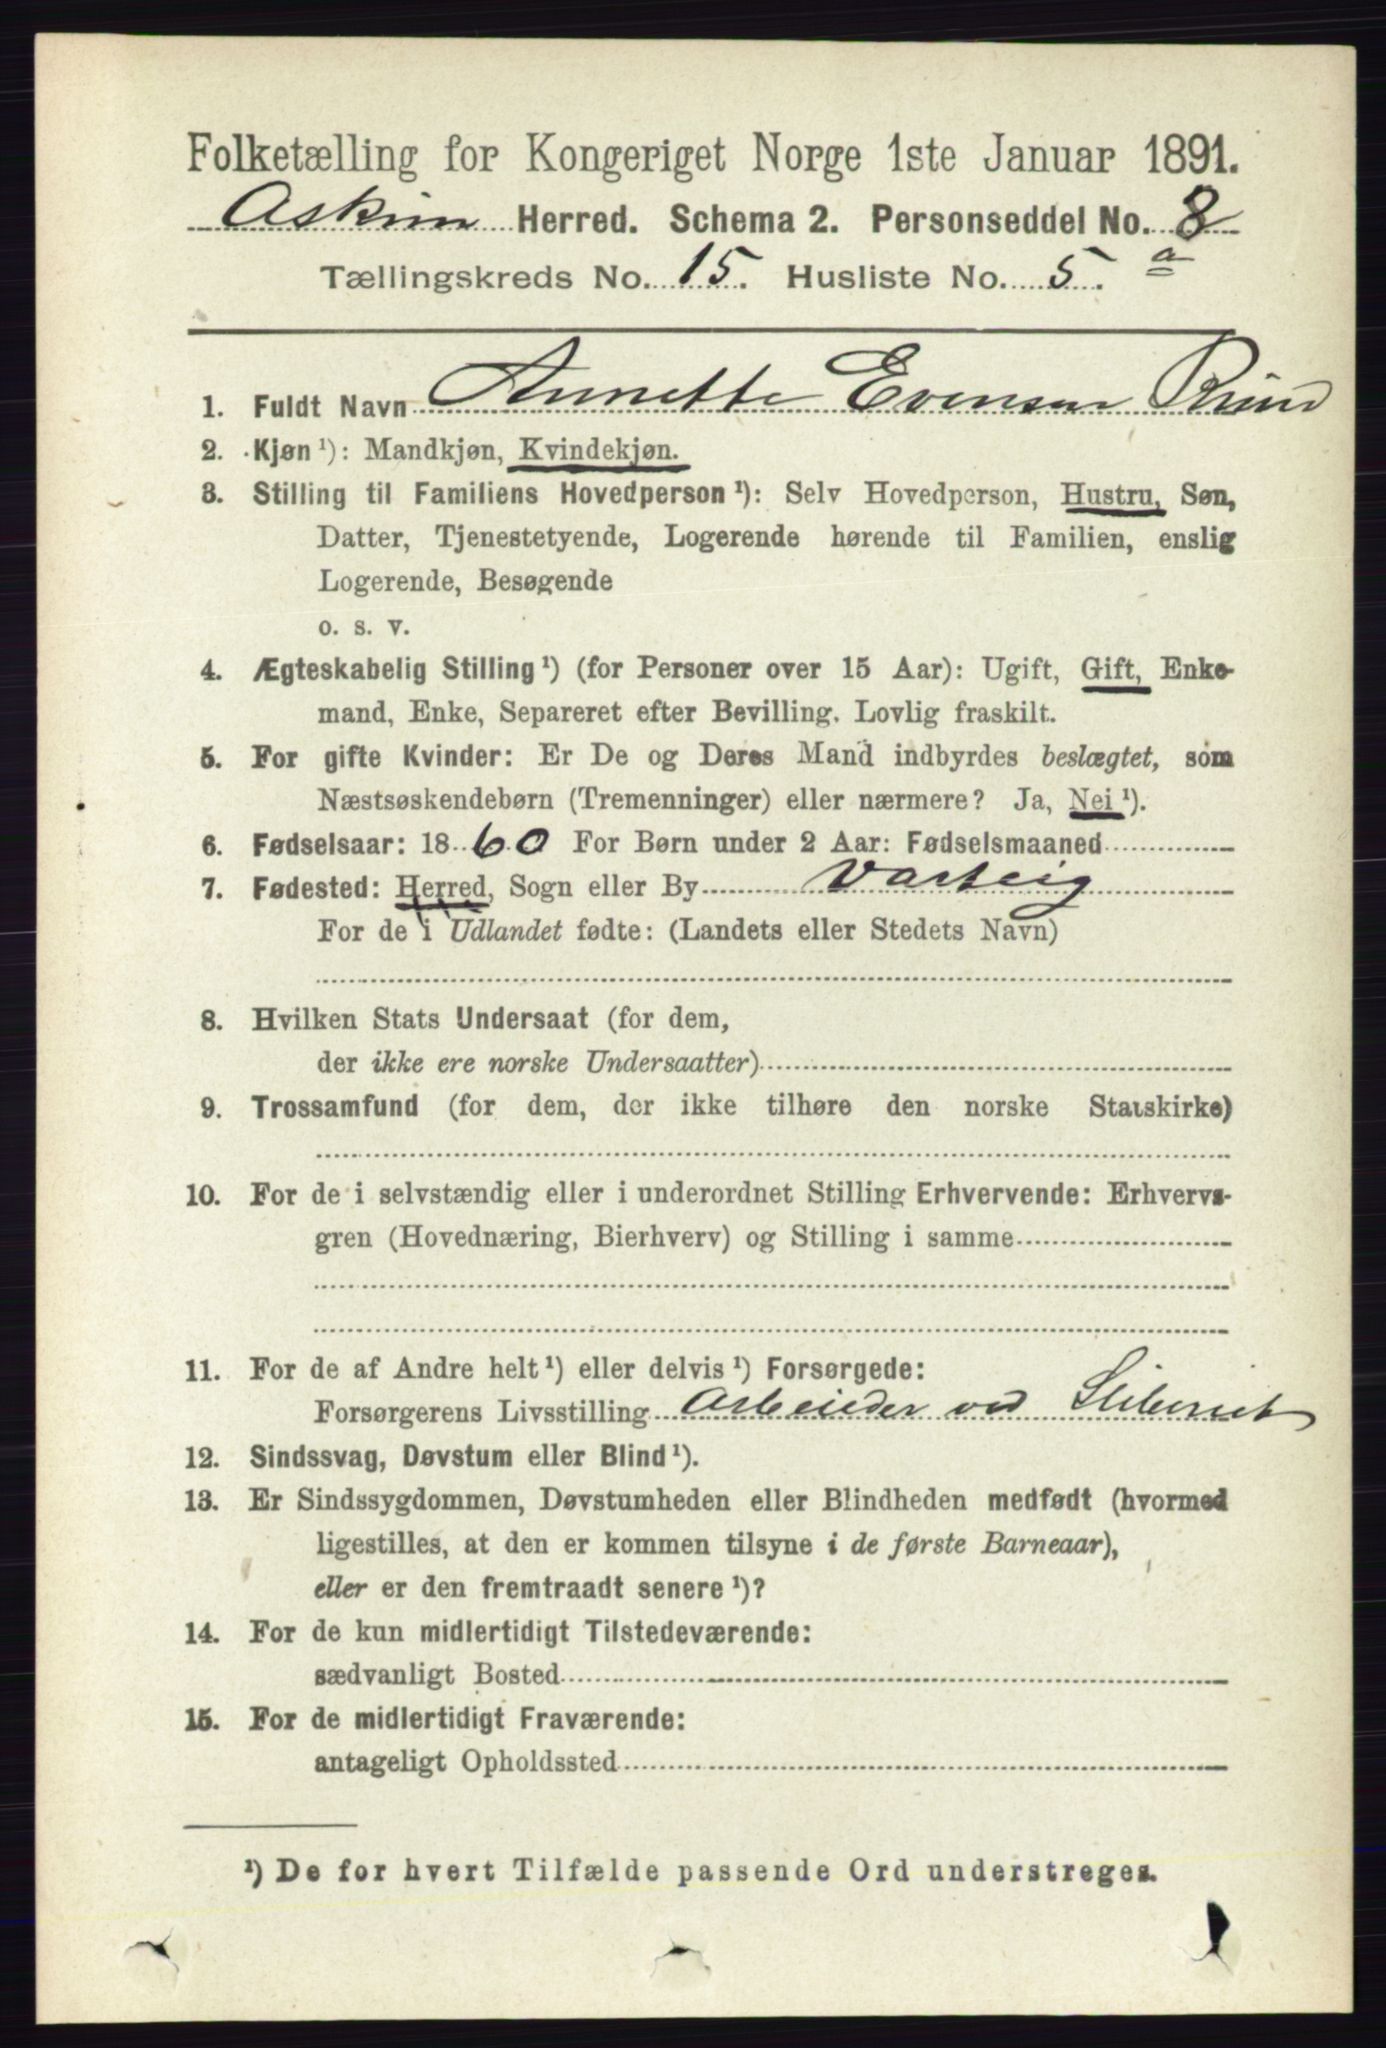 Folketælling for Kongeriget Norge 1ste Januar 1891.
Askim Herred. Schema 2. Personseddel No. 8
Tællingskreds No. 15. Husliste No. 5. a
1. Fuldt Navn Annette Evensen
2. Kjøn ¹): Mandkjøn, Kvindekjøn.
3. Stilling til Familiens Hovedperson ¹): Selv Hovedperson, Hustru, Søn,
Datter, Tjenestetyende, Logerende hørende til Familien, enslig
Logerende, Besøgende
o. s. v.
4. Ægteskabelig Stilling ¹) (for Personer over 15 Aar): Ugift, Gift, Enke-
mand, Enke, Separeret efter Bevilling. Lovlig fraskilt.
5. For gifte Kvinder: Er De og Deres Mand indbyrdes beslægtet, som
Næstsøskendebørn (Tremenninger) eller nærmere? Ja, Nei ¹).
6. Fødselsaar: 1860 For Børn under 2 Aar: Fødselsmaaned
7. Fødested: Herred, Sogn eller By Varteig
For de i Udlandet fødte: (Landets eller Stedets Navn)
8. Hvilken Stats Undersaat (for dem,
der ikke ere norske Undersaatter)
9. Trossamfund (for dem, der ikke tilhøre den norske Statskirke)
10. For de i selvstændig eller i underordnet Stilling Erhvervende: Erhvervs-
gren (Hovednæring, Bierhverv) og Stilling i samme
11. For de af Andre helt ¹) eller delvis ¹) Forsørgede:
Forsørgerens Livsstilling Arbeider ved
12. Sindssvag, Døvstum eller Blind ¹).
13. Er Sindssygdommen, Døvstumheden eller Blindheden medfødt (hvormed
ligestilles, at den er kommen tilsyne i de første Barneaar),
eller er den fremtraadt senere ¹)?
14. For de kun midlertidigt Tilstedeværende:
sædvanligt Bosted
15. For de midlertidigt Fraværende:
antageligt Opholdssted
¹) De for hvert Tilfælde passende Ord understreges.